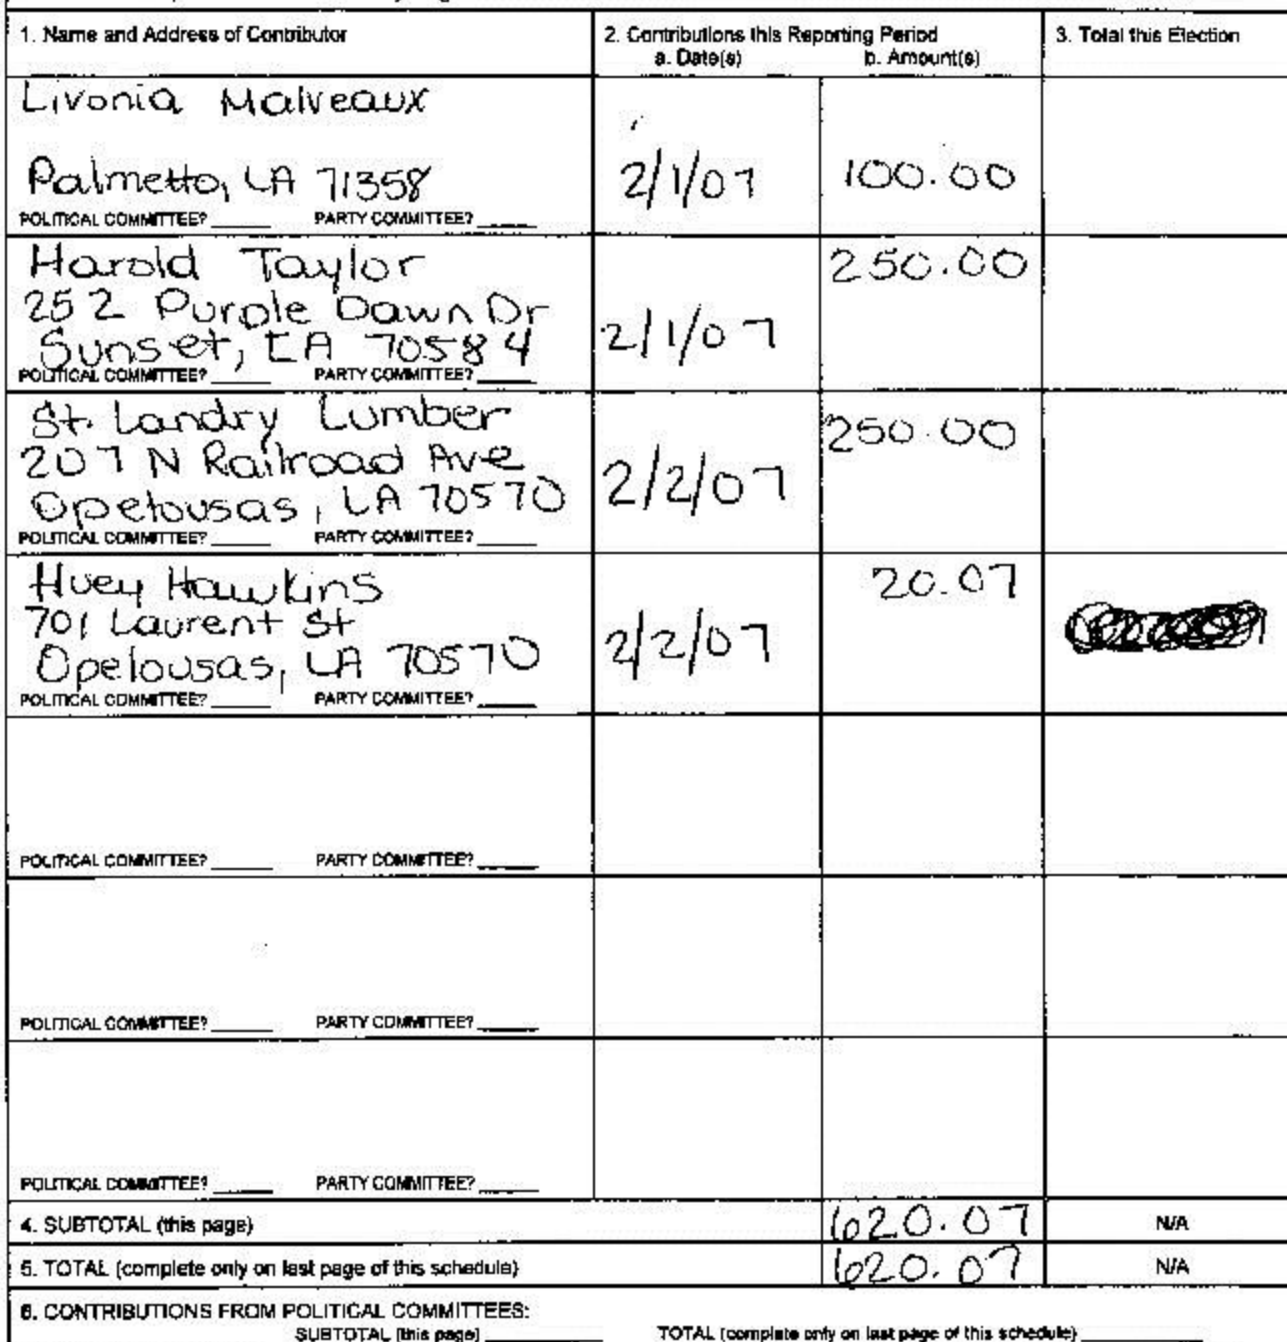 1. Name and Address of Contributor
2. Contributions this Reporting Period
a. Date(s) b. Amount(s)
3. Total this Election
Livonia Malveaux
Palmetto, LA 71358
2/1/07 100.00
POLITICAL COMMITTEE? PARTY COMMITTEE?
Harold Taylor
252 Purple Dawn Dr
Sunset, LA 70584
2/1/07 250.00
POLITICAL COMMITTEE? PARTY COMMITTEE?
St. Landry Lumber
207 N Railroad Ave
Opelousas, LA 70570
2/2/07 250.00
POLITICAL COMMITTEE? PARTY COMMITTEE?
Huey Hawkins
701 Laurent St
Opelousas, LA 70570
2/2/07 20.07
POLITICAL COMMITTEE? PARTY COMMITTEE?
POLITICAL COMMITTEE? PARTY COMMITTEE?
POLITICAL COMMITTEE? PARTY COMMITTEE?
POLITICAL COMMITTEE? PARTY COMMITTEE?
4. SUBTOTAL (this page) 620.07 N/A
5. TOTAL (complete only on last page of this schedule) 620.07 N/A
6. CONTRIBUTIONS FROM POLITICAL COMMITTEES:
SUBTOTAL (this page) TOTAL (complete only on last page of this schedule)